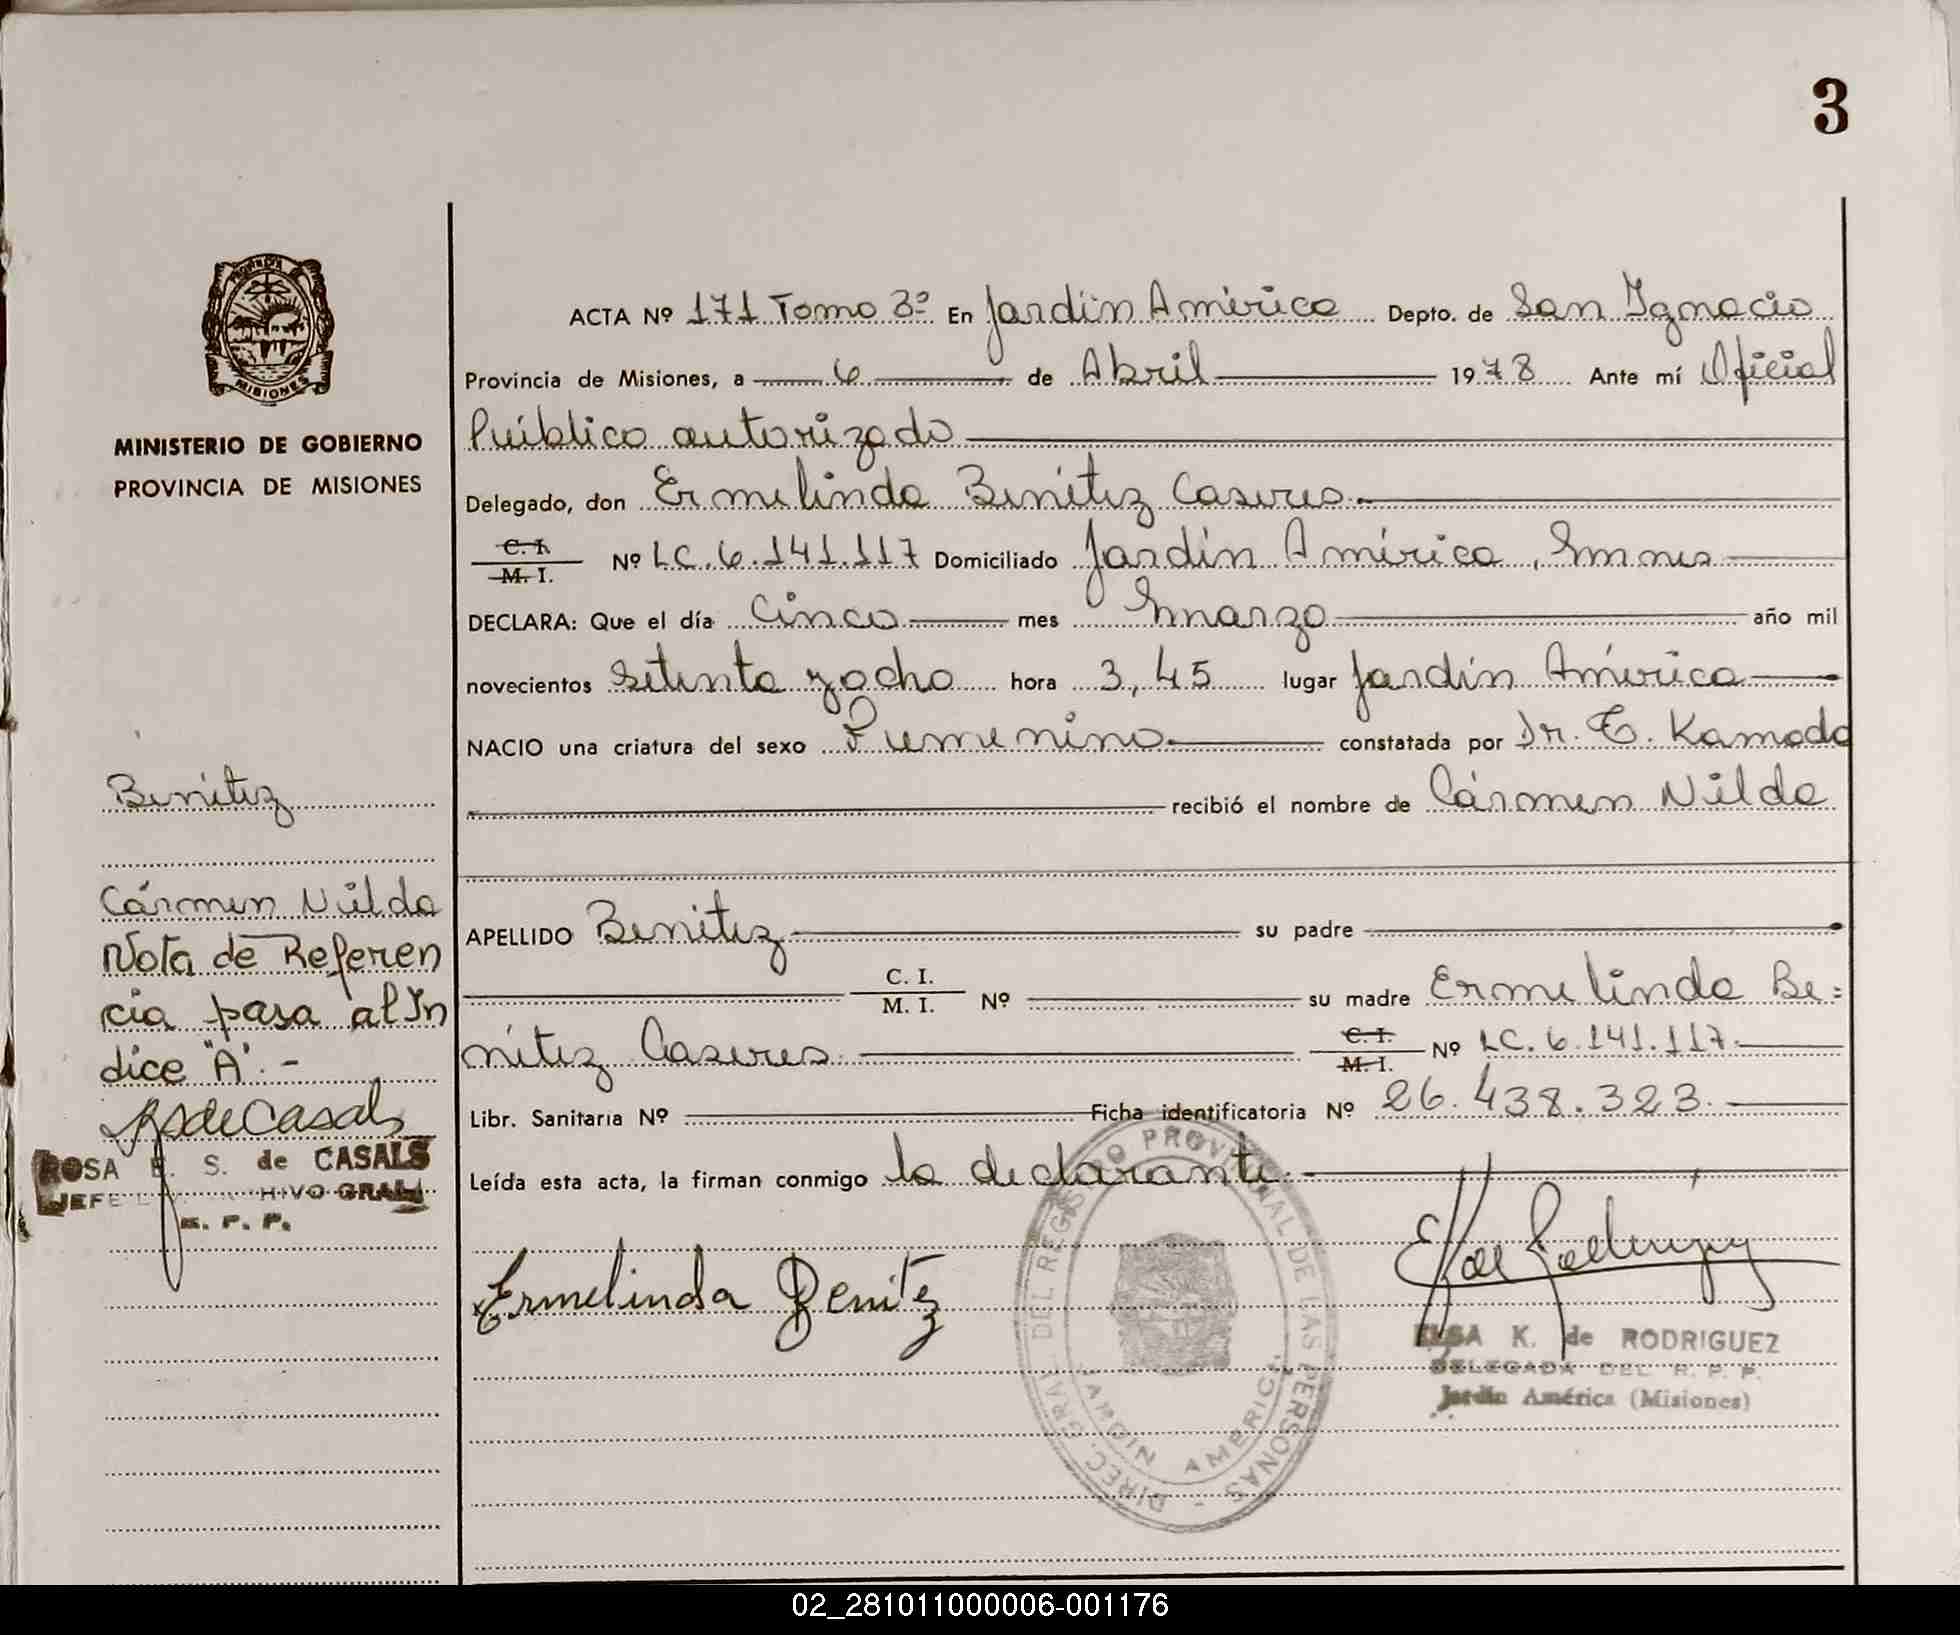 3
ACTA Nº 171 Tomo 3º En Jardín América Depto. de San Ignacio
Provincia de Misiones, a 6 de Abril 1978 Ante mí Oficial
Público autorizado
Delegado, don Ermelinda Benítez Caseres
C. I.
M. I. Nº LC. 6.141.117 Domiciliado Jardín América, Mnes
DECLARA: Que el día Cinco mes Marzo año mil
novecientos setenta y ocho hora 3,45 lugar Jardín América
NACIO una criatura del sexo Femenino constatada por Dr. T. Kamada
recibió el nombre de Cármen Nilda
APELLIDO Benítez su padre
C. I.
M. I. Nº su madre Ermelinda Be=
nítez Caseres C. I.
M. I. Nº LC. 6.141.117
Libr. Sanitaria Nº Ficha identificatoria Nº 26.438.323
Leída esta acta, la firman conmigo la declarante
Ermelinda Benítez
ELSA K. de RODRIGUEZ
DELEGADA DEL R. P. P.
Jardín América (Misiones)
DIREC. GRAL. DEL REGISTRO PROVINCIAL DE LAS PERSONAS -
JARDIN AMERICA
PROVINCIA
MISIONES
MINISTERIO DE GOBIERNO
PROVINCIA DE MISIONES
Benítez
Cármen Nilda
Nota de Referen
cia pasa al In
dice "A".-
RSdeCasals
ROSA E. S. de CASALS
JEFE HIVO GRAL.
R. P. P.
02_281011000006-001176